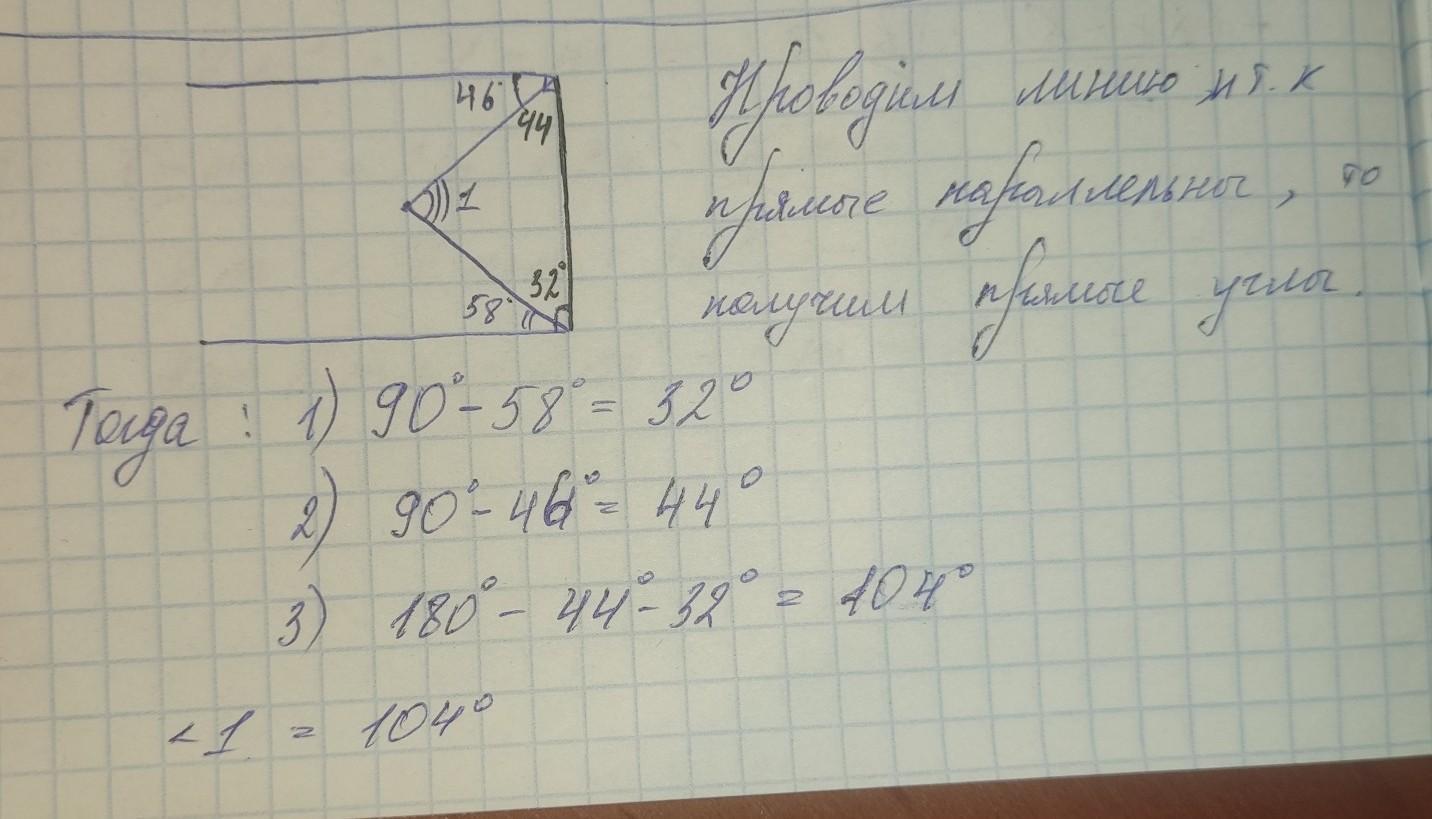 46°
44
1
32°
58°
Проводим линию, и т.к
прямые параллельны, то
получим прямые углы.
Тогда: 1) 90° - 58° = 32°
2) 90° - 46° = 44°
3) 180° - 44° - 32° = 104°
<1 = 104°